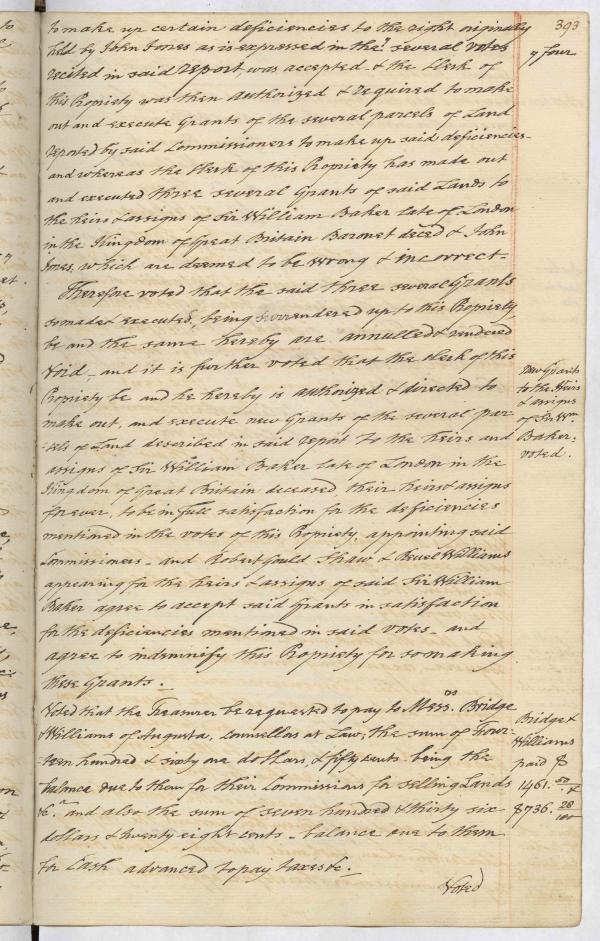 393
to make up certain deficiencies to the right originally
held by John Jones as is expressed in the several votes
recited in said report was accepted & the Clerk of
this Propriety was then authorized & required to make
out and execute Grants of the several parcels of Land
reported by said Commissioners to make up said deficiencies
and whereas the Clerk of this Propriety has made out
and executed three several Grants of said Lands to
the heirs & assigns of Sir William Baker late of London
in the Kingdom of Great Britain Baronet deced & John
Jones, which are deemed to be wrong & incorrect-
Therefore voted that the said three several Grants
so made & executed, being surrendered up to this Propriety,
be and the same hereby are annulled & rendered
void - and it is further voted that the Clerk of this
Propriety be and he hereby is authorized & directed to
make out, and execute new Grants of the several par-
-cels of Land described in said report to the heirs and
assigns of Sir William Baker late of London in the
Kingdom of Great Britain deceased their heirs & assigns
forever, to be in full satisfaction for the deficiencies
mentioned in the votes of this Propriety, appointing said
Commissioners - and Robert Gould Shaw & Reuel Williams
appearing for the heirs & assigns of said Sir William
Baker agree to accept said Grants in satisfaction
for the deficiencies mentioned in said votes - and
agree to indemnify this Propriety for so making
these Grants.
Voted that the Treasurer be requested to pay to Messrs. Bridge
& Williams of Augusta, Counsellors at Law, the sum of Four-
-teen hundred & sixty one dollars, & fifty cents being the
balance due to them for their Commissions for selling Lands
&c. and also the sum of seven hundred & thirty six
dollars & twenty eight cents - balance due to them
for Cash advanced to pay taxes &c.
Voted
y four
New Grants
to the Heirs
& assigns
of Sir Wm
Baker
voted.
Bridge &
Williams
paid $
1461. 50
$736. 28/100